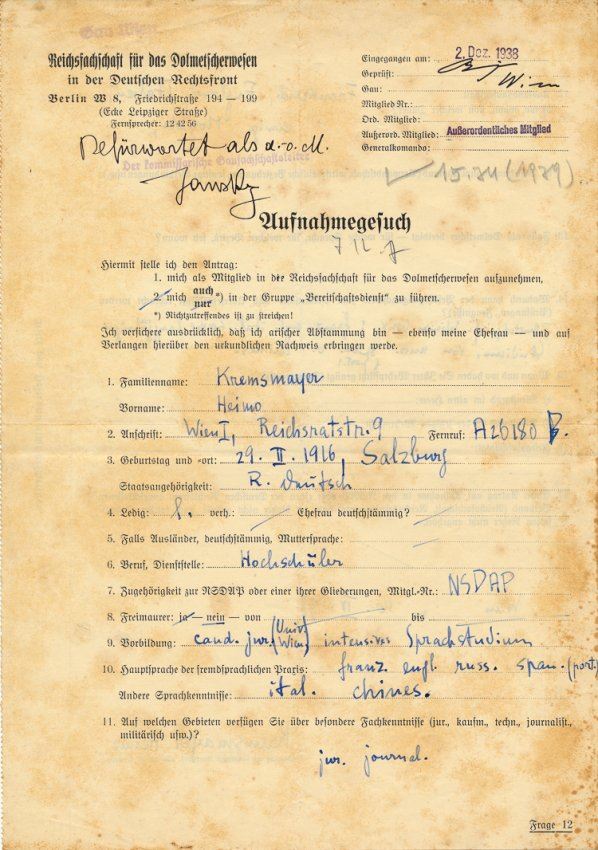 Gau Wien
Reichsfachschaft für das Dolmetscherwesen
in der Deutschen Rechtsfront
Berlin W 8, Friedrichstraße 194 — 199
(Ecke Leipziger Straße)
Fernsprecher: 12 42 56
Eingegangen am: 2. Dez. 1938
Geprüft:
Gau: Wien
Mitglied Nr.:
Ord. Mitglied:
Außerord. Mitglied: Außerordentliches Mitglied
Generalkomando:
15.IV (1939)
Befürwortet als a.o.M.
Der kommissarische Gaufachschaftsleiter
Jansky
Aufnahmegesuch
Hiermit stelle ich den Antrag:
1. mich als Mitglied in die Reichsfachschaft für das Dolmetscherwesen aufzunehmen,
2. mich auch nur *) in der Gruppe „Bereitschaftsdienst" zu führen.
*) Nichtzutreffendes ist zu streichen!
Ich versichere ausdrücklich, daß ich arischer Abstammung bin — ebenso meine Ehefrau — und auf
Verlangen hierüber den urkundlichen Nachweis erbringen werde.
1. Familienname: Kremsmayer
Vorname: Heimo
2. Anschrift: Wien I, Reichsratstr. 9 Fernruf: A26180 B.
3. Geburtstag und -ort: 29. II. 1916, Salzburg
Staatsangehörigkeit: R. Deutsch
4. Ledig: l. verh.: Ehefrau deutschstämmig?
5. Falls Ausländer, deutschstämmig, Muttersprache:
6. Beruf, Dienststelle: Hochschüler
7. Zugehörigkeit zur NSDAP oder einer ihrer Gliederungen, Mitgl.-Nr.: NSDAP
8. Freimaurer: ja — nein — von bis
9. Vorbildung: cand. jur. (Univ. Wien) intensives Sprachstudium
10. Hauptsprache der fremdsprachlichen Praxis: franz. engl. russ. span. (port.)
Andere Sprachkenntnisse: ital. chines.
11. Auf welchen Gebieten verfügen Sie über besondere Fachkenntnisse (jur., kaufm., techn., journalist.,
militärisch usw.)?
jur. journal.
Frage 12